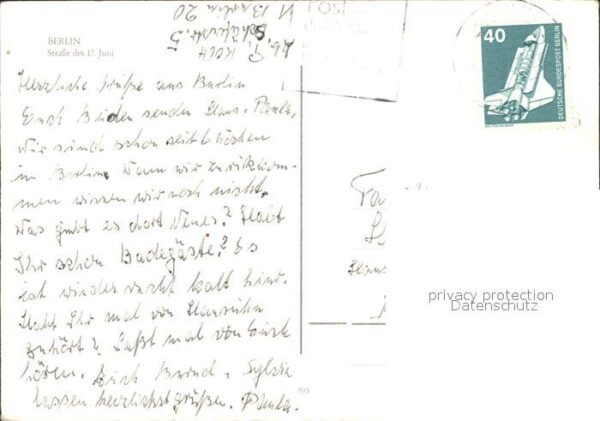 BERLIN
Straße des 17. Juni
Herzliche Grüße aus Berlin
Euch Beiden senden Hans - Paula,
Wir sind schon seit 6 Wochen
in Berlin. Wann wir zurückkom-
men wissen wir noch nicht.
Was gibt es dort Neues? Habt
Ihr schon Badegäste? Es
ist wieder recht kalt hier.
Habt Ihr mal von
gehört? Laßt mal von Euch
hören. Auch Bernd + Sylvia
lassen herzlichst grüßen. Paula.
Berlin 20
40
DEUTSCHE BUNDESPOST BERLIN
privacy protection
Datenschutz